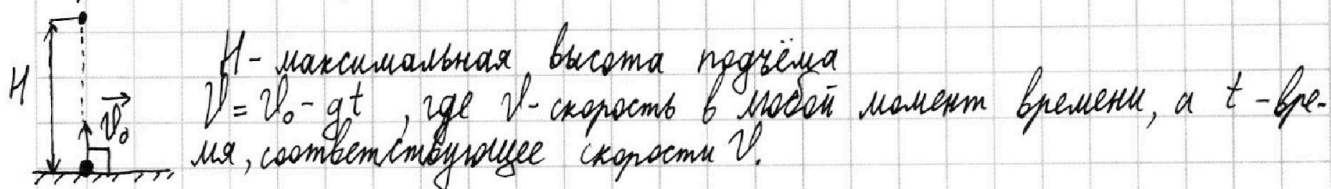 H - максимальная высота подъёма
H
V = V₀ - gt , где V - скорость в любой момент времени, а t - вре-
V⃗₀
мя, соответствующее скорости V.